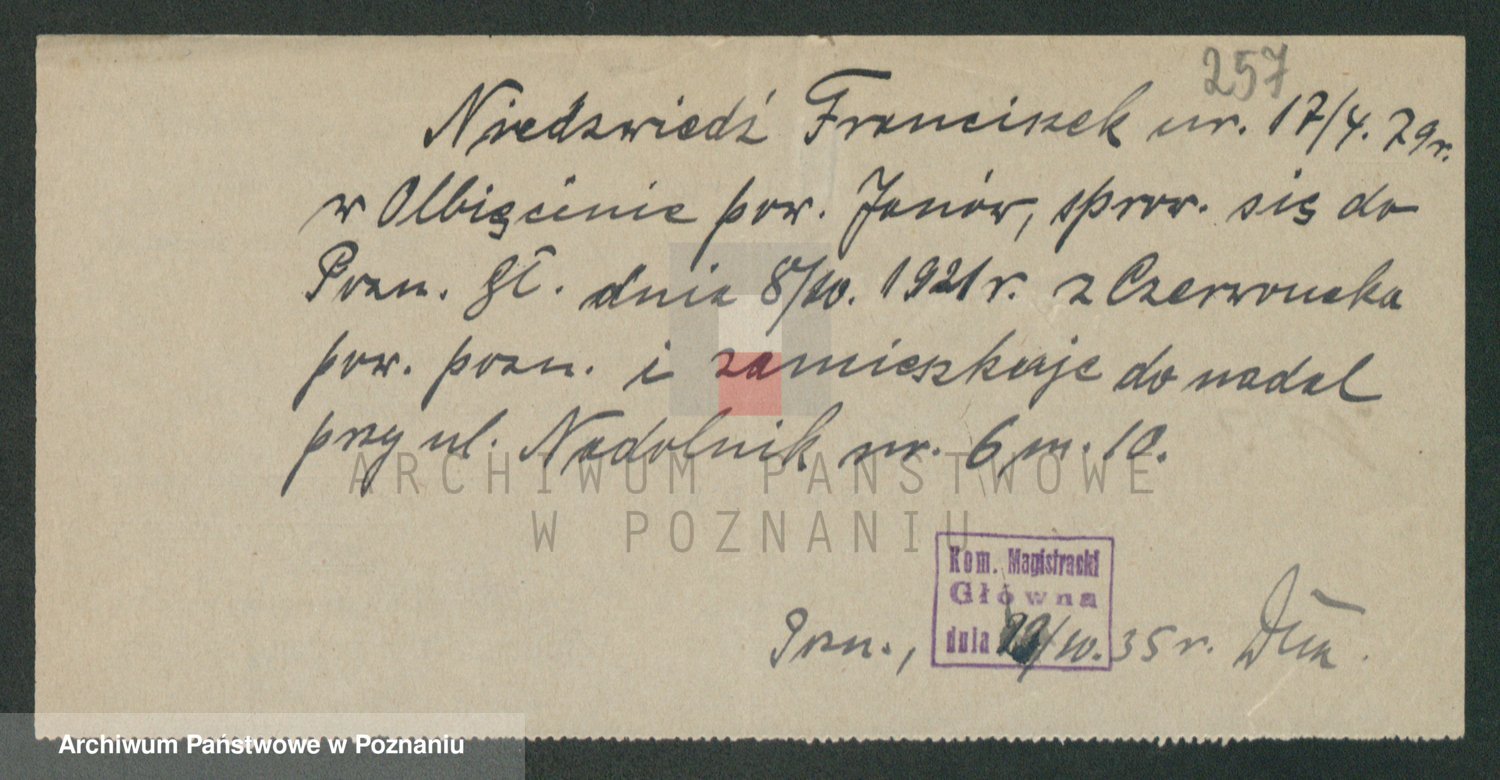 257
Niedzwiedź Franciszek ur. 17/4. 79 r.
w Olbięcinie pow. Janów, sprow. się do
Pozn. Gł. dnia 8/10. 1921 r. z Czerwonaka
pow. pozn. i zamieszkuje do nadal
przy ul. Nadolnik nr. 6 m. 10.
ARCHIWUM PAŃSTWOWE
W POZNANIU
Kom. Magistracki
Główna
Pozn., dnia 22/10. 35 r.
Archiwum Państwowe w Poznaniu